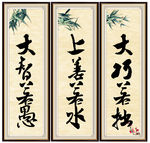 大巧若拙
上善若水
大智若愚